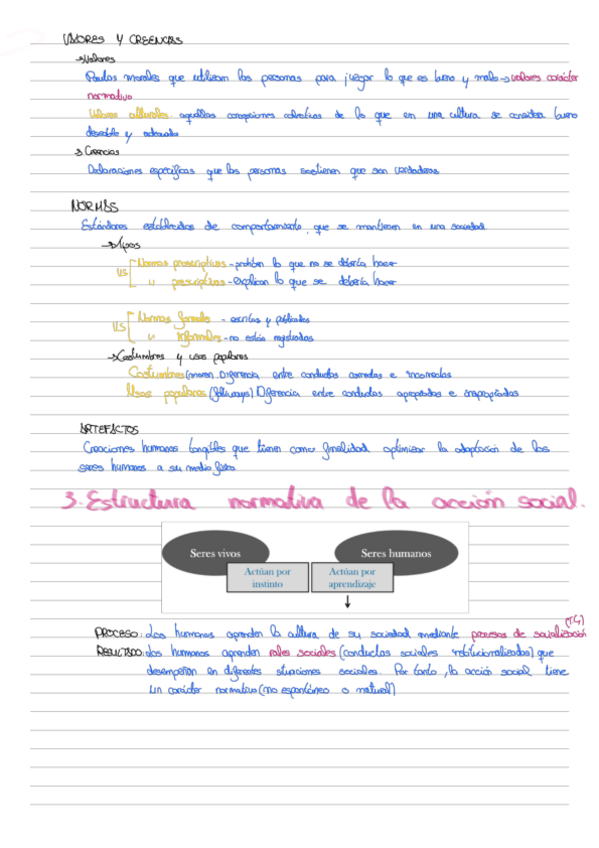 VALORES Y CREENCIAS
→Valores
Pautas morales que utilizan las personas para juzgar lo que es bueno y malo→valores carácter
normativo
Valores culturales: aquellas concepciones colectivas de lo que en una cultura se considera bueno
deseable y adecuado
→Creencias
Declaraciones específicas que las personas sostienen que son verdaderas
NORMAS
Estándares establecidos de comportamiento, que se mantienen en una sociedad
→Tipos
VS [Normas proscriptivas-prohiben lo que no se debería hacer
" prescriptivas-explican lo que se debería hacer
VS [Normas formales - escritas y publicadas
" informales-no están registradas
→Costumbres y usos populares
Costumbres(mores). Diferencia entre conductas correctas e incorrectas
Usos populares (folkways) Diferencia entre conductas apropiadas e inapropiadas
ARTEFACTOS
Creaciones humanas tangibles que tienen como finalidad optimizar la adaptación de los
seres humanos a su medio físico
3. Estructura normativa de la acción social.
Seres vivos Seres humanos
Actúan por instinto Actúan por aprendizaje
(T4)
PROCESO: Los humanos aprenden la cultura de su sociedad mediante procesos de socialización
RESULTADO: Los humanos aprenden roles sociales (conductas sociales institucionalizadas) que
desempeñan en diferentes situaciones sociales. Por tanto, la acción social tiene
un carácter normativo (no espontáneo o natural)